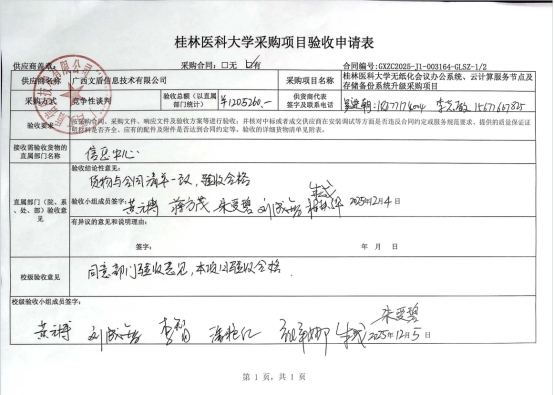 桂林医科大学采购项目验收申请表
供应商盖章: 采购合同:□无 ☑有 合同编号:GXZC2025-J1-003164-GLSZ-1/2
供应商名称 广西文盾信息技术有限公司 采购项目名称 桂林医科大学无纸化会议办公系统、云计算服务节点及存储备份系统升级采购项目
采购方式 竞争性谈判 验收总额(以直属部门统计) ¥1205260.— 供应商代表签字及联系电话
验收要求 按采购合同、采购文件、响应文件及验收方案等进行验收;并核对中标或者成交供应商在安装调试等方面是否违反合同约定或服务规范要求、提供的质量保证证明材料是否齐全、应有的配件及附件是否达到合同约定等。验收的详细货物清单见附表。
接收需验收货物的直属部门名称 信息中心
直属部门(院、系、处、部)验收意见
验收结论性意见:
货物与合同清单一致,验收合格
验收小组成员签字: 2025年12月4
有异议的意见和说明理由:
签字: 年 月 日
校级验收意见 同意部门验收意见,本项目验收合格.
校级验收小组成员签字:
朱爱碧
2025年12月5日
第 1 页,共 1 页